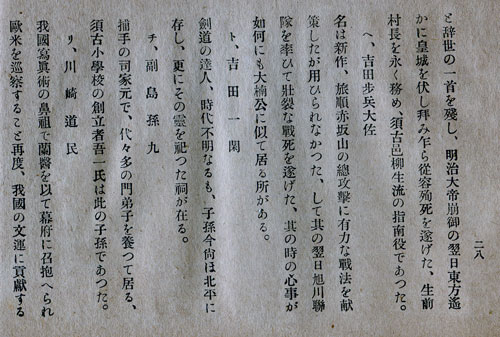 二八
と辭世の一首を殘し、明治大帝崩御の翌日東方遙
かに皇城を伏し拜み乍ら從容殉死を遂げた、生前
村長を永く務め、須古邑柳生流の指南役であつた。
ヘ、吉田步兵大佐
名は新作、旅順赤坂山の總攻擊に有力な戰法を献
策したが用ひられなかつた、して其の翌日旭川聯
隊を率ひて壯裂な戰死を遂げた、其の時の心事が
如何にも大楠公に似て居る所がある。
ト、吉田一閑
劍道の達人、時代不明なるも、子孫今尙ほ北平に
存し、更にその靈を祀つた祠が在る。
チ、副島孫九
捕手の司家元で、代々多の門弟子を養つて居る、
須古小學校の創立者吾一氏は此の子孫であつた。
リ、川崎道民
我國寫眞術の鼻祖で蘭醫を以て幕府に召抱へられ
歐米を巡察すること再度、我國の文運に貢獻する